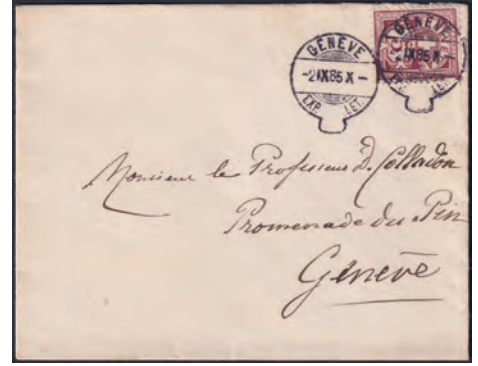 GENÈVE
-2 IX 85 X-
EXP. LET.
GENÈVE
-2 IX 85 X-
LET.
Monsieur le Professeur D. Colladon
Promenade du Pin
Genève